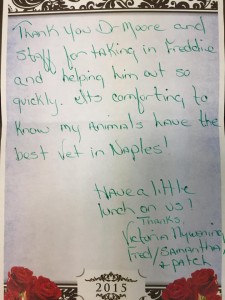 Thank you Dr Moore and
staff for taking in Freddie
and helping him out so
quickly. Its comforting to
know my animals have the
best vet in Naples!
Have a little
lunch on us!
Thanks,
Victoria
Fred/Samantha/
+ Patch
2015